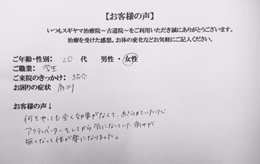 【お客様の声】
いつもスギヤマ治療院~古道院~をご利用いただき誠にありがとうございます。
治療を受けた感想、お体の変化などお気軽にご記入ください。
ご年齢・性別: 20 代 男性・女性
ご職業: 学生
ご来院のきっかけ: 紹介
お困りの症状 肩こり
お客様の声↓
何をやっても全く効果がなくて、あきらめていたけど
アクティベーターをしてから気になっていた痛みが
無くなって体が楽になりました。